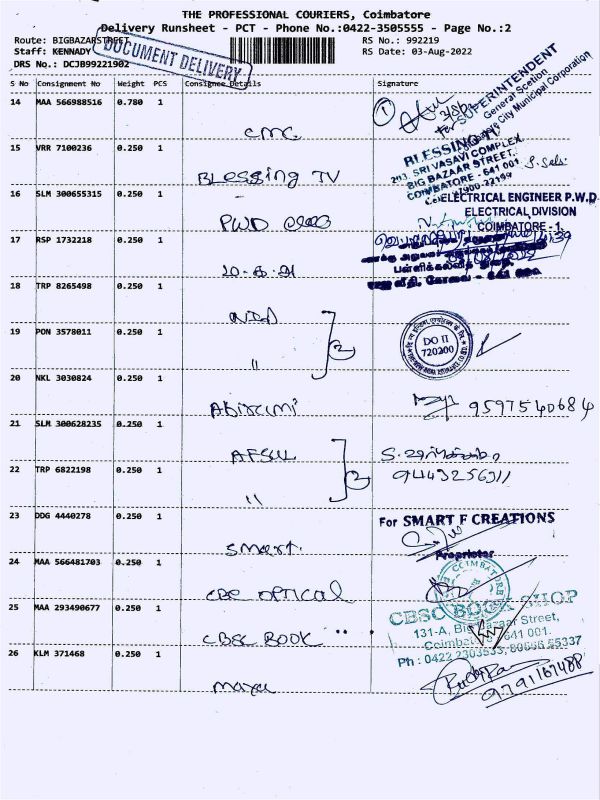 THE PROFESSIONAL COURIERS, Coimbatore
Delivery Runsheet - PCT - Phone No.:0422-3505555 - Page No.:2
Route: BIGBAZARSTREET RS No.: 992219
Staff: KENNADY RS Date: 03-Aug-2022
DRS No.: DCJB99221902
DOCUMENT DELIVERY
S No Consignment No Weight PCS Consignee Details Signature
14 MAA 566988516 0.780 1
CMC
SUPERINTENDENT
General Scetion
City Municipal Corporation
15 VRR 7100236 0.250 1
Blessing TV
BLESSING TV
293, SRI VASAVI COMPLEX
BIG BAZAAR STREET,
COIMBATORE - 641 001
16 SLM 300655315 0.250 1
PWD
ELECTRICAL ENGINEER P.W.D
ELECTRICAL DIVISION
COIMBATORE - 1.
17 RSP 1732218 0.250 1
18 TRP 8265498 0.250 1
NIA
19 PON 3578011 0.250 1
" 2
DO II
720200
20 NKL 3030824 0.250 1
Abirami 9597540684
21 SLM 300628235 0.250 1
22 TRP 6822198 0.250 1
" 2
9443256311
23 DDG 4440278 0.250 1
Smart.
For SMART F CREATIONS
Proprietor
24 MAA 566481703 0.250 1
CBE OPTICAL
COIMBATORE
25 MAA 293490677 0.250 1
CBSC BOOK " "
CBSC BOOK SHOP
131-A, Big Bazaar Street,
Coimbatore 641 001.
Ph : 0422 2303533, 80566 55337
26 KLM 371468 0.250 1
Maya
9791167488